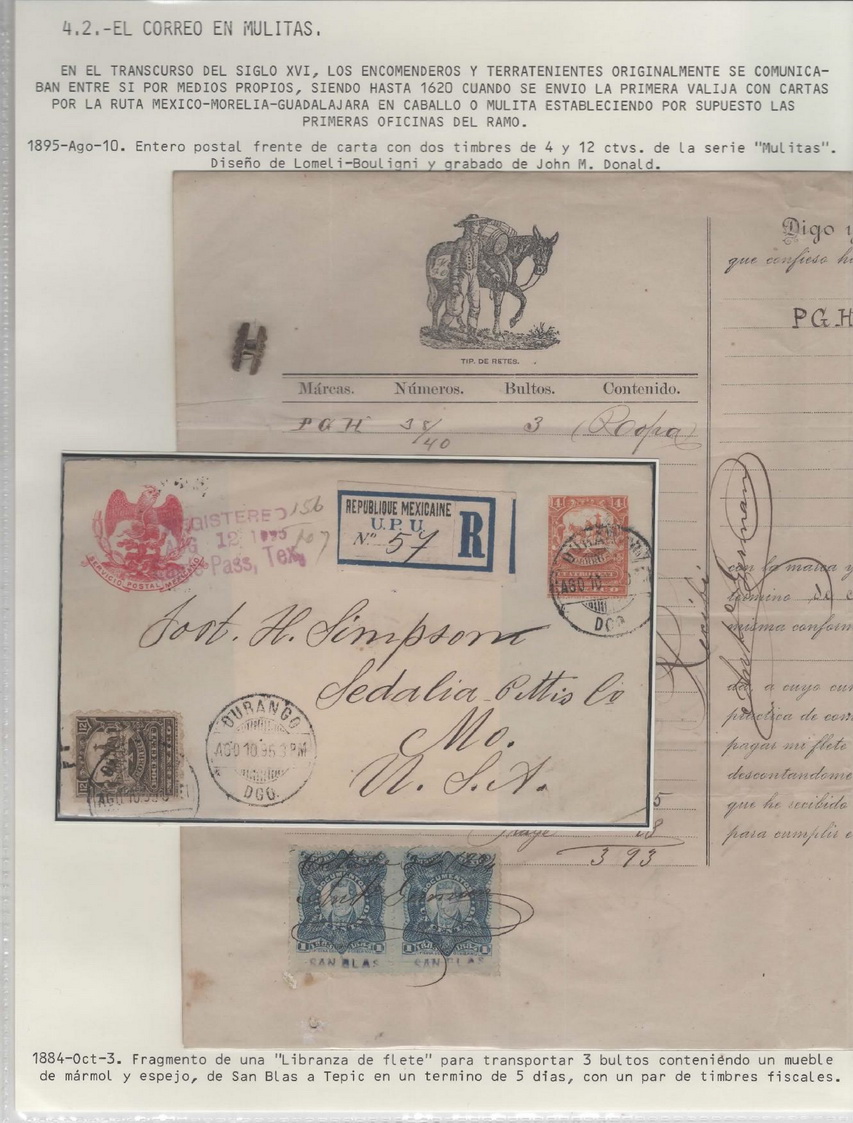 4.2.-EL CORREO EN MULITAS.
EN EL TRANSCURSO DEL SIGLO XVI, LOS ENCOMENDEROS Y TERRATENIENTES ORIGINALMENTE SE COMUNICA-
BAN ENTRE SI POR MEDIOS PROPIOS, SIENDO HASTA 1620 CUANDO SE ENVIO LA PRIMERA VALIJA CON CARTAS
POR LA RUTA MEXICO-MORELIA-GUADALAJARA EN CABALLO O MULITA ESTABLECIENDO POR SUPUESTO LAS
PRIMERAS OFICINAS DEL RAMO.
1895-Ago-10. Entero postal frente de carta con dos timbres de 4 y 12 ctvs. de la serie "Mulitas".
Diseño de Lomeli-Bouligni y grabado de John M. Donald.
TIP. DE RETES.
Márcas. Números. Bultos. Contenido.
PGH 38/40 3 (Ropa)
Digo y
que confieso h
PGH
con la marca y
termino de
misma conform
da, a cuyo cum
práctica de com
pagar mi flete
descontandome
que he recibido
para cumplir
Recibí
SERVICIO POSTAL MEXICANO
GISTERED
12 1895
Pass, Tex.
156
107
REPUBLIQUE MEXICAINE
U.P.U.
Nº 57
R
4 4
DURANGO
AGO 10
DGO.
Jost. H. Simpson
Sedalia Pettis Co
Mo.
U. S. A.
12
DURANGO
AGO 10 95 3 PM
DGO.
AGO 10 95
5
18
3 93
DOCUMENTOS DOCUMENTOS
SAN BLAS SAN BLAS
1884-Oct-3. Fragmento de una "Libranza de flete" para transportar 3 bultos conteniéndo un mueble
de mármol y espejo, de San Blas a Tepic en un termino de 5 dias, con un par de timbres fiscales.